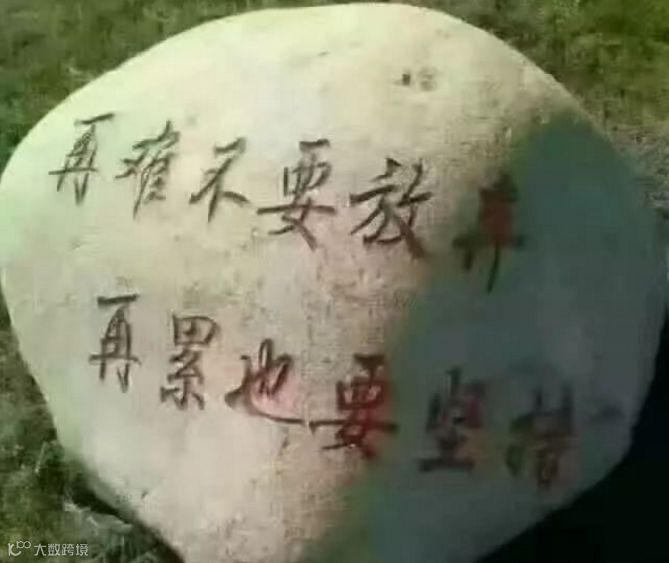 再难不要放弃
再累也要坚持
大数跨境